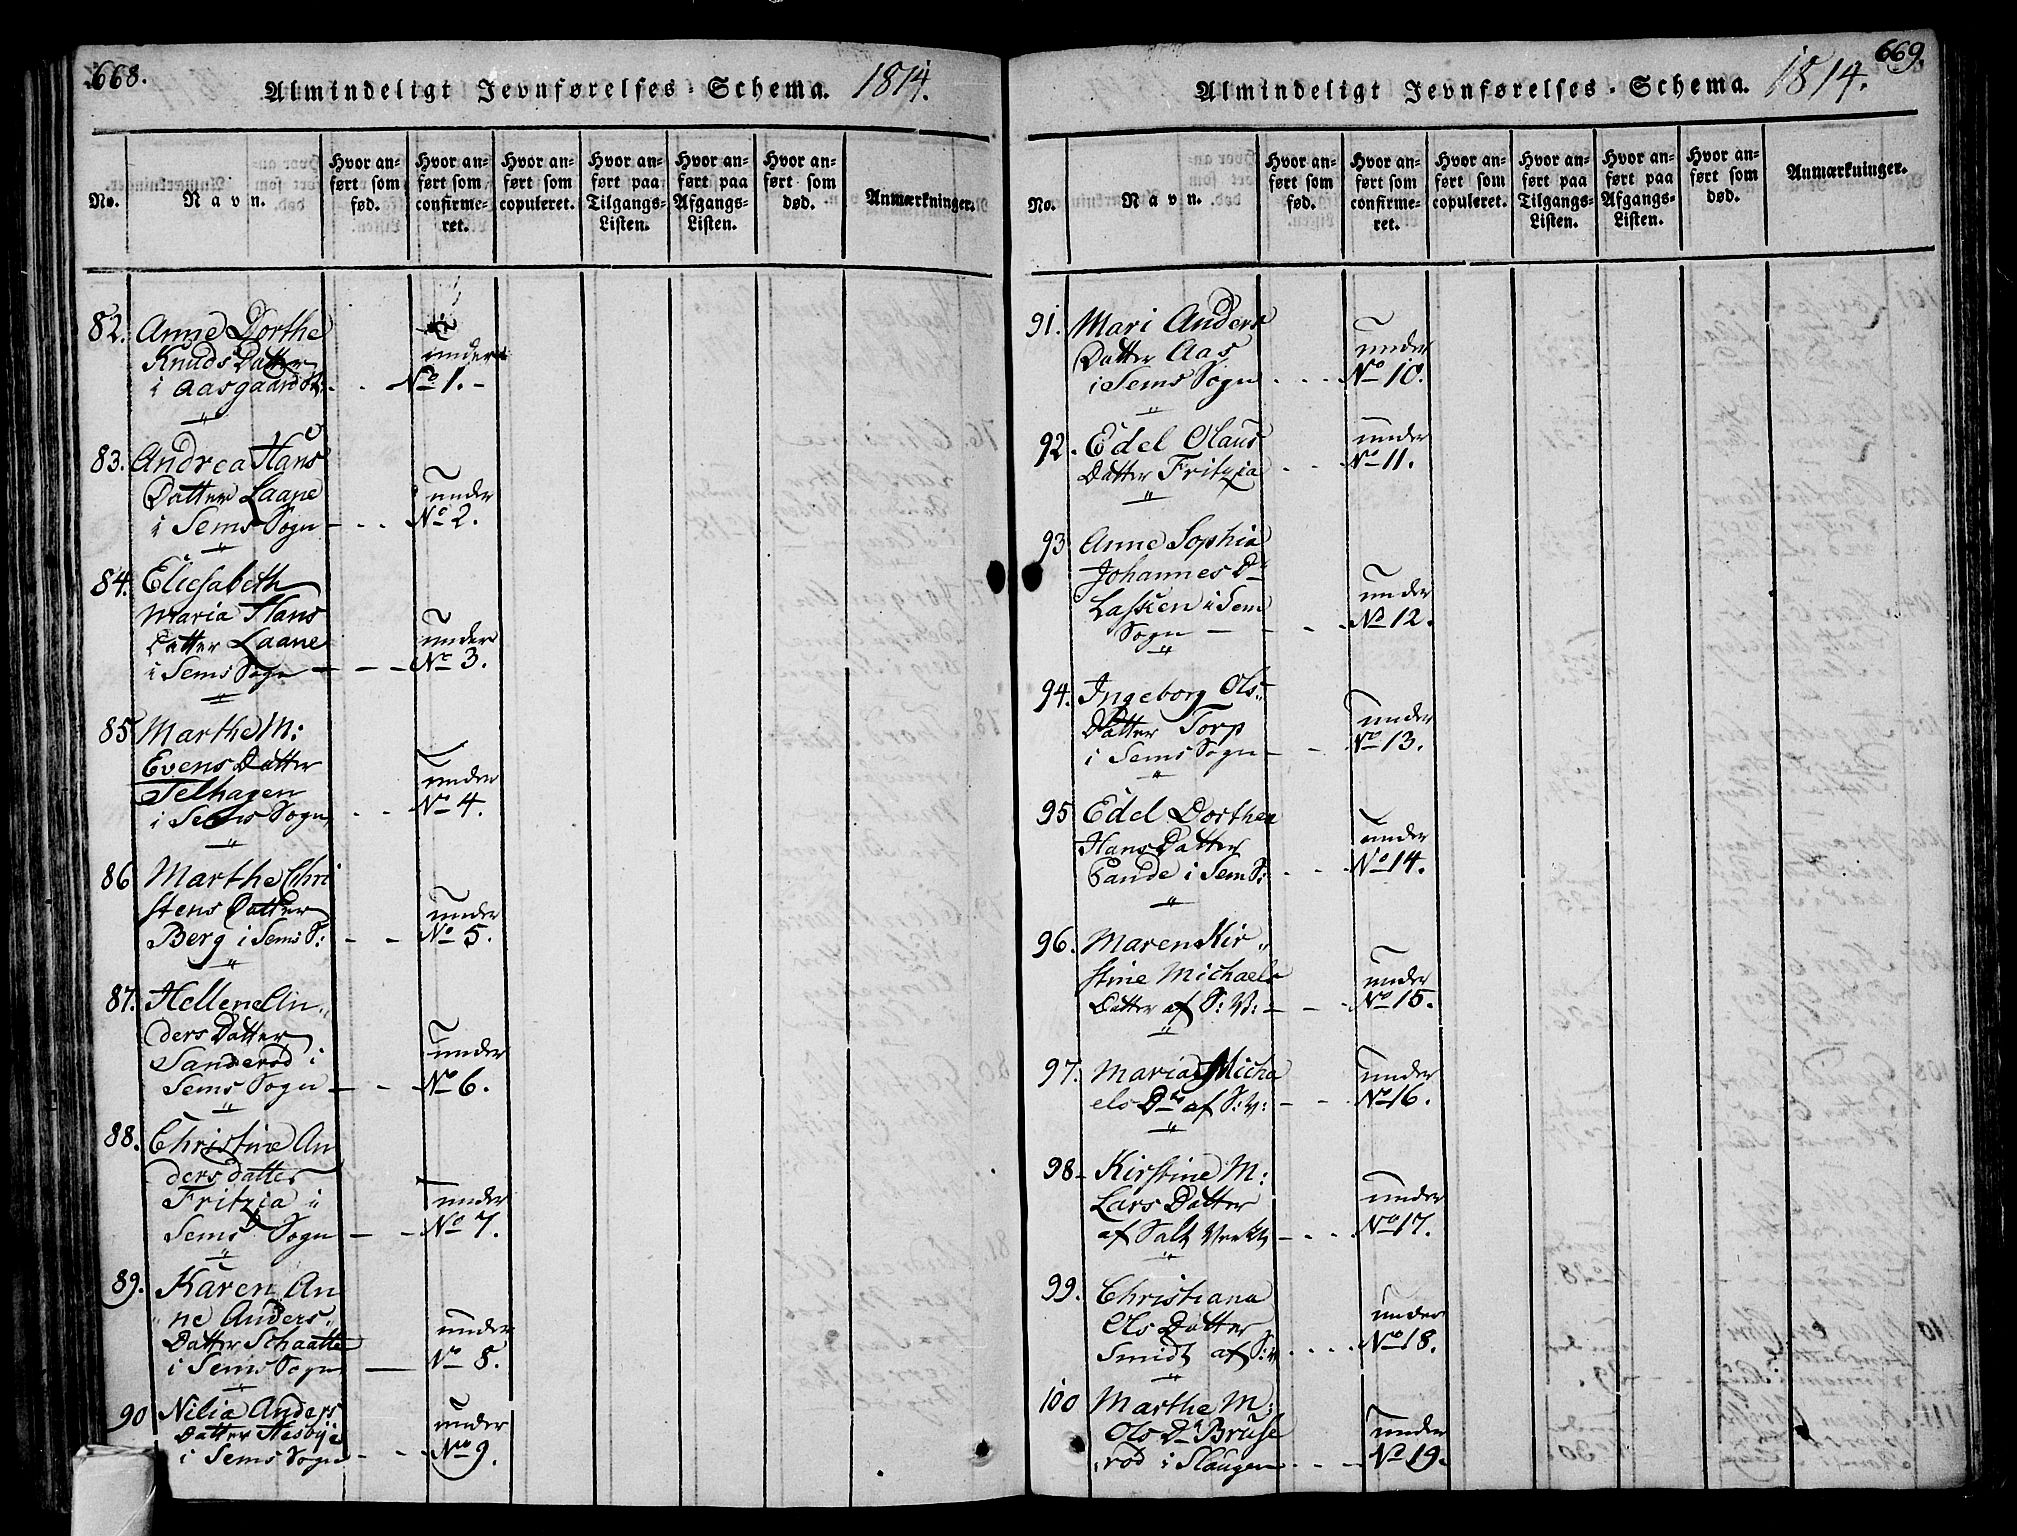 668.
Almindeligt Jevnførelses-Schema. 1814.
No.
Navn.
Hvor an-
ført som
fød.
Hvor an-
ført som
confirme-
ret.
Hvor an-
ført som
copuleret.
Hvor an-
ført paa
Tilgangs-
Listen.
Hvor an-
ført paa
Afgangs-
Listen.
Hvor an-
ført som
død.
Anmærkninger.
82. Anne Dorthe
Knuds Datter under
i Aasgaard No 1.
83. Andrea Hans
Datter Laane under
i Sems Sogn No 2.
84. Eliesabeth
Maria Hans
Datter Laane under
i Sems Sogn No 3.
85 Marthe M:
Evens Datter
Selhagen under
i Sems Sogn No 4.
86 Marthe Chri
stens Datter under
Berg i Sems S: No 5.
87. Hellene An-
ders Datter
Sanderød i under
Sems Sogn No 6.
88. Christine An
ders datter
Fritzia i under
Sems Sogn No 7.
89. Karen An
ne Anders-
Datter Schaatte under
i Sems Sogn No 8.
90 Nilia Anders
Datter Aesbye under
i Sems Sogn No 9.
669.
Almindeligt Jevnførelses-Schema. 1814.
No.
Navn.
Hvor an-
ført som
fød.
Hvor an-
ført som
confirme-
ret.
Hvor an-
ført som
copuleret.
Hvor an-
ført paa
Tilgangs-
Listen.
Hvor an-
ført paa
Afgangs-
Listen.
Hvor an-
ført som
død.
Anmærkninger.
91. Mari Anders
Datter Aas under
i Sems Sogn No 10.
92. Edel Olaus under
Datter Fritzia No 11.
93 Anne Sophia
Johannes Dr
Lassen i Sem under
Sogn No 12.
94. Ingeborg Ols-
Datter Torp under
i Sems Sogn No 13.
95 Edel Dorthea
Hans Datter under
Bande i Sem S: No 14.
96. Maren Kir-
stine Michaels under
Datter af S: V: No 15.
97. Maria Micha under
els Dr af S: V: No 16.
98 Kirstine M:
Lars Datter under
af Salt Verket No 17.
99. Christiana
Ols Datter under
Smidt af S: V No 18.
100 Marthe M:
Ols Dr Bruse under
rød i Slaugen No 19.